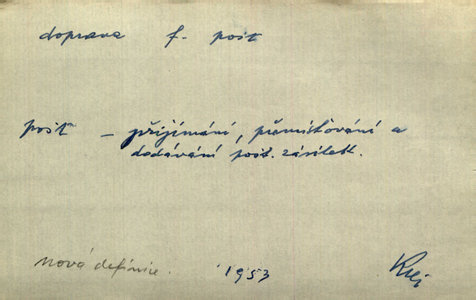 doprava f. pošt
pošt. – přijímání, přemísťování a
dodávání pošt. zásilek.
nová definice. 1953